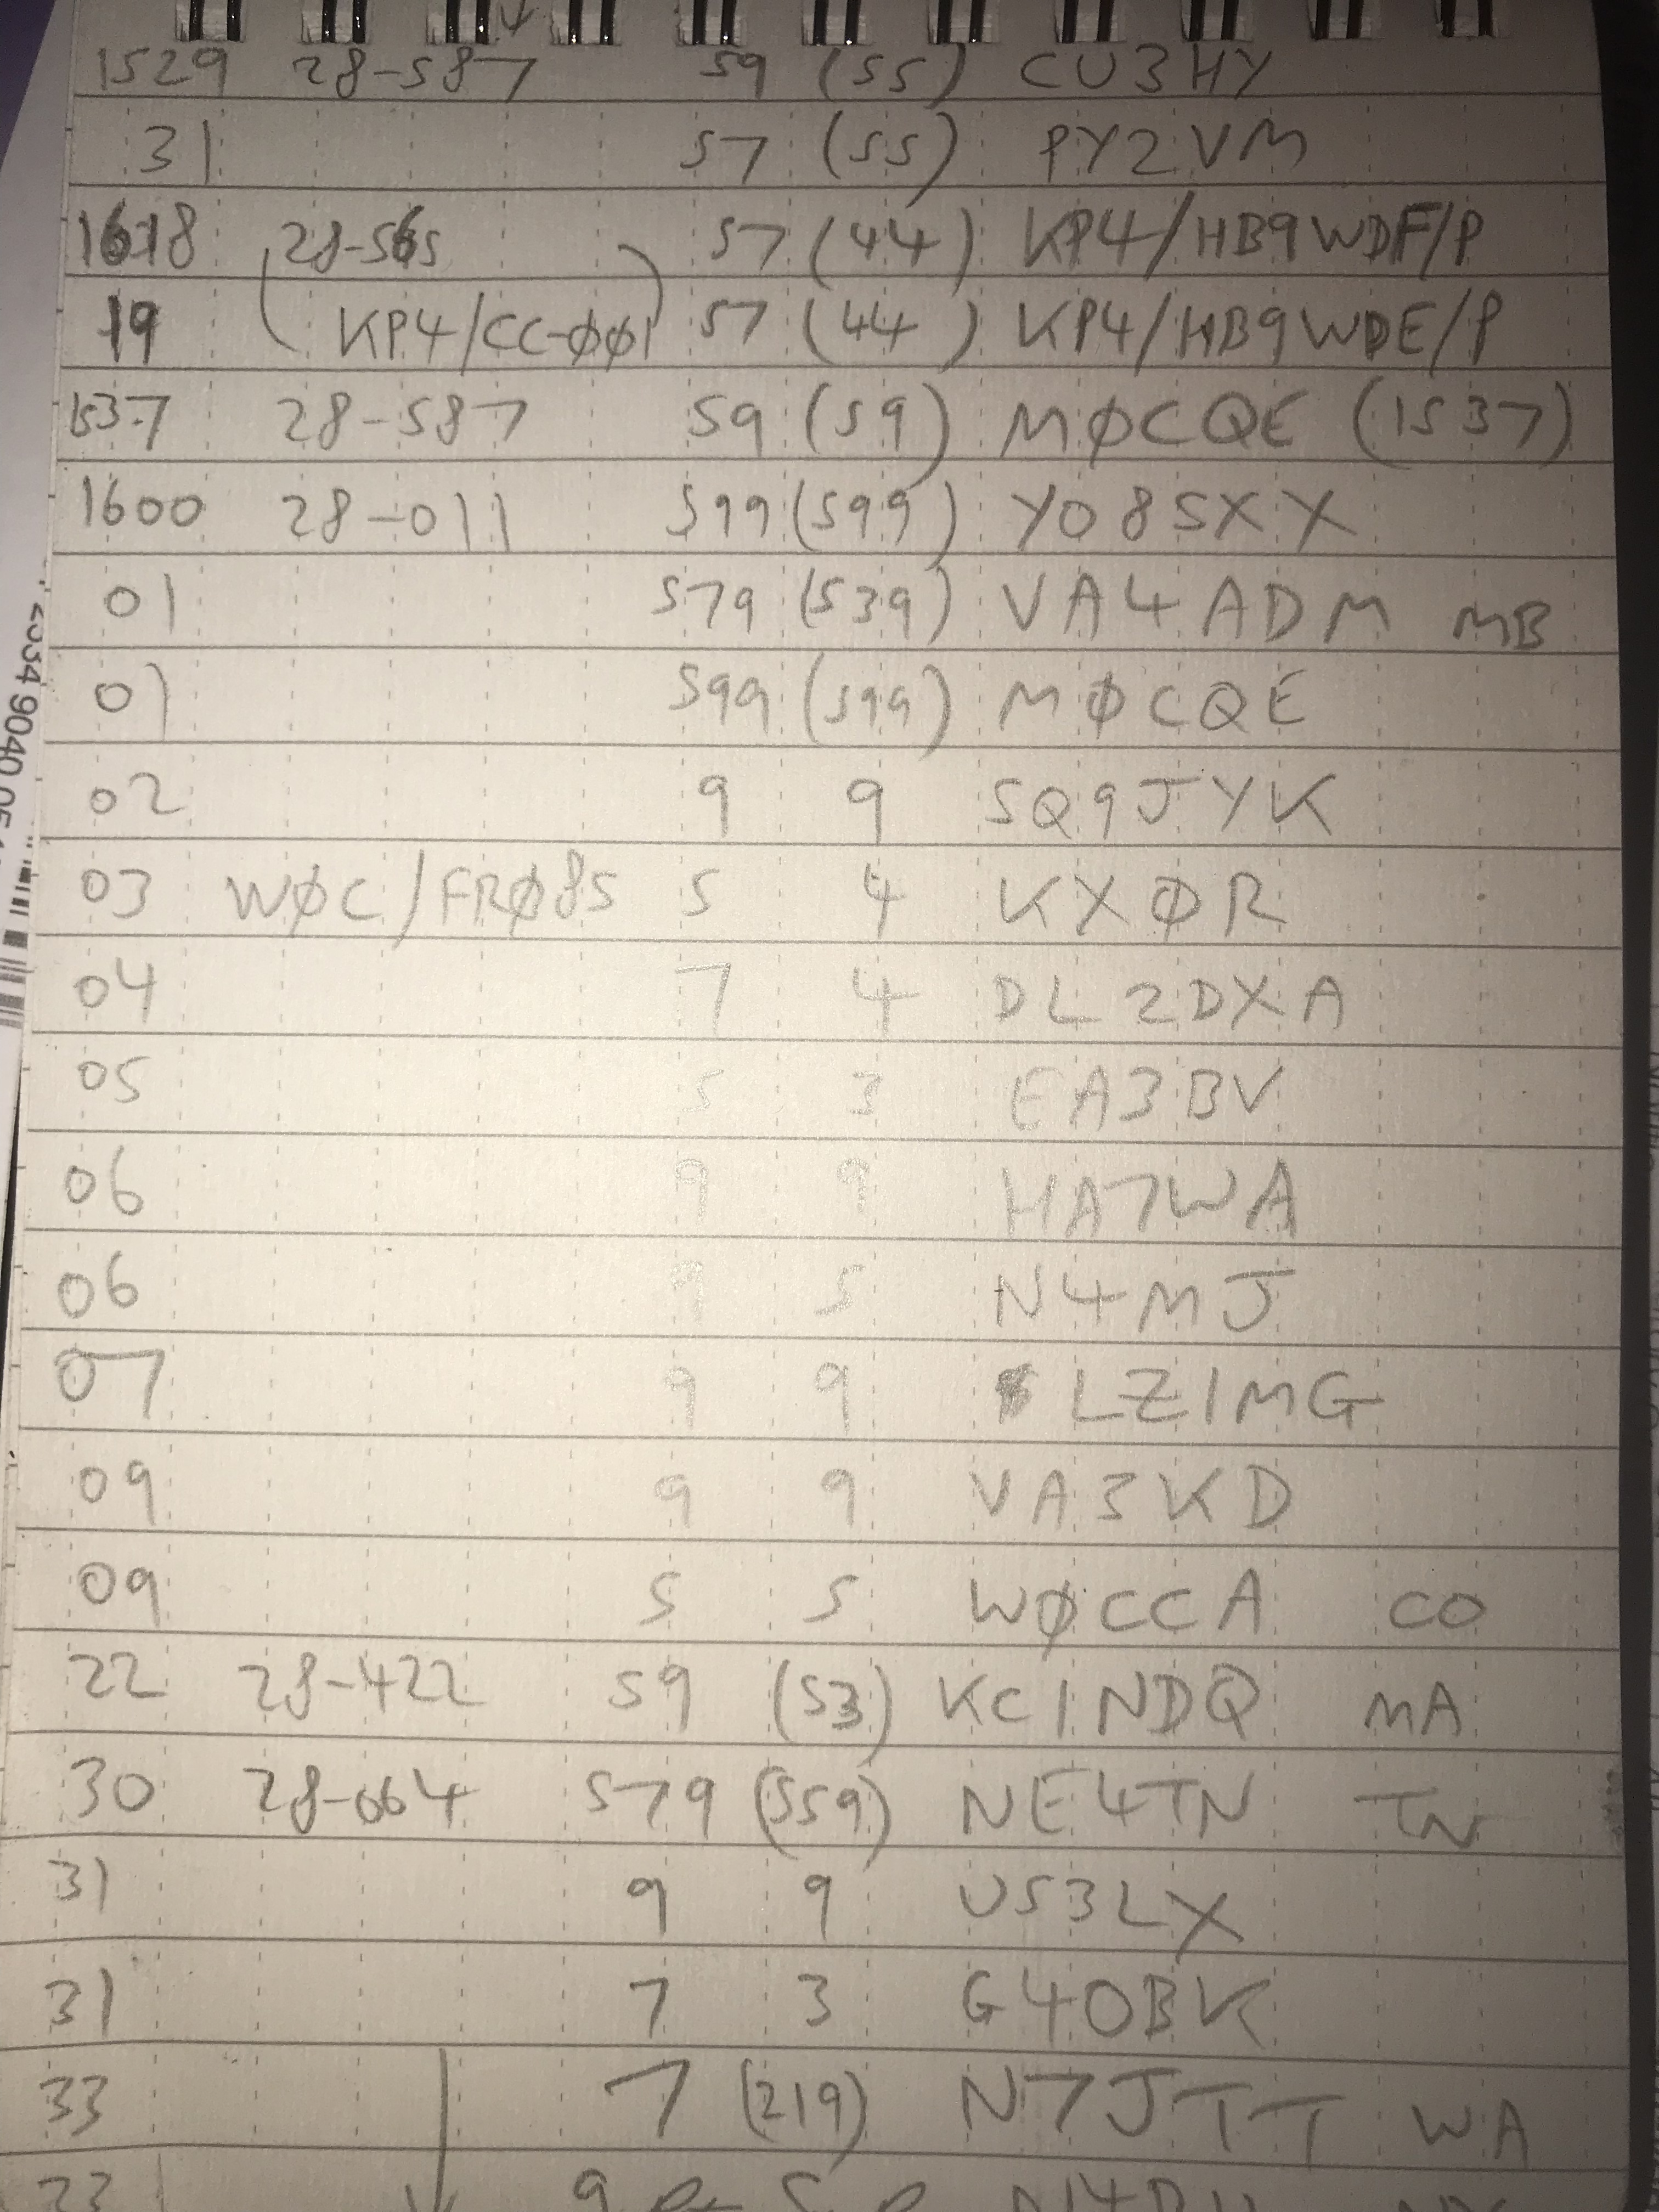 1529 28-587 59 (55) CU3HY
31 57 (55) PY2VM
1618 28-565 57 (44) KP4/HB9WDF/P
19 (KP4/CC-ØØ1) 57 (44) KP4/HB9WDE/P
1537 28-587 59 (59) MØCQE (1537)
1600 28-011 599 (599) YO8SXX
01 579 (539) VA4ADM MB
01 599 (599) MØCQE
02 9 9 SQ9JYK
03 WØC/FRØ85 5 4 KXØR
04 7 4 DL2DXA
05 5 3 EA3BV
06 9 9 HA7WA
06 9 5 N4MJ
07 9 9 LZ1MG
09 9 9 VA3KD
09 5 5 WØCCA CO
22 28-422 59 (53) KC1NDQ MA
30 28-064 579 (559) NE4TN TN
31 9 9 US3LX
31 7 3 G4OBK
33 7 (219) N7JTT WA